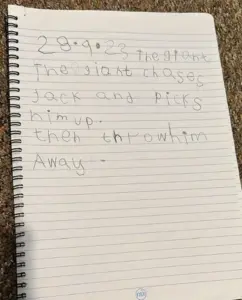 28.9.23 The giant
The giant chases
Jack and Picks
him up.
then throwhim
Away.